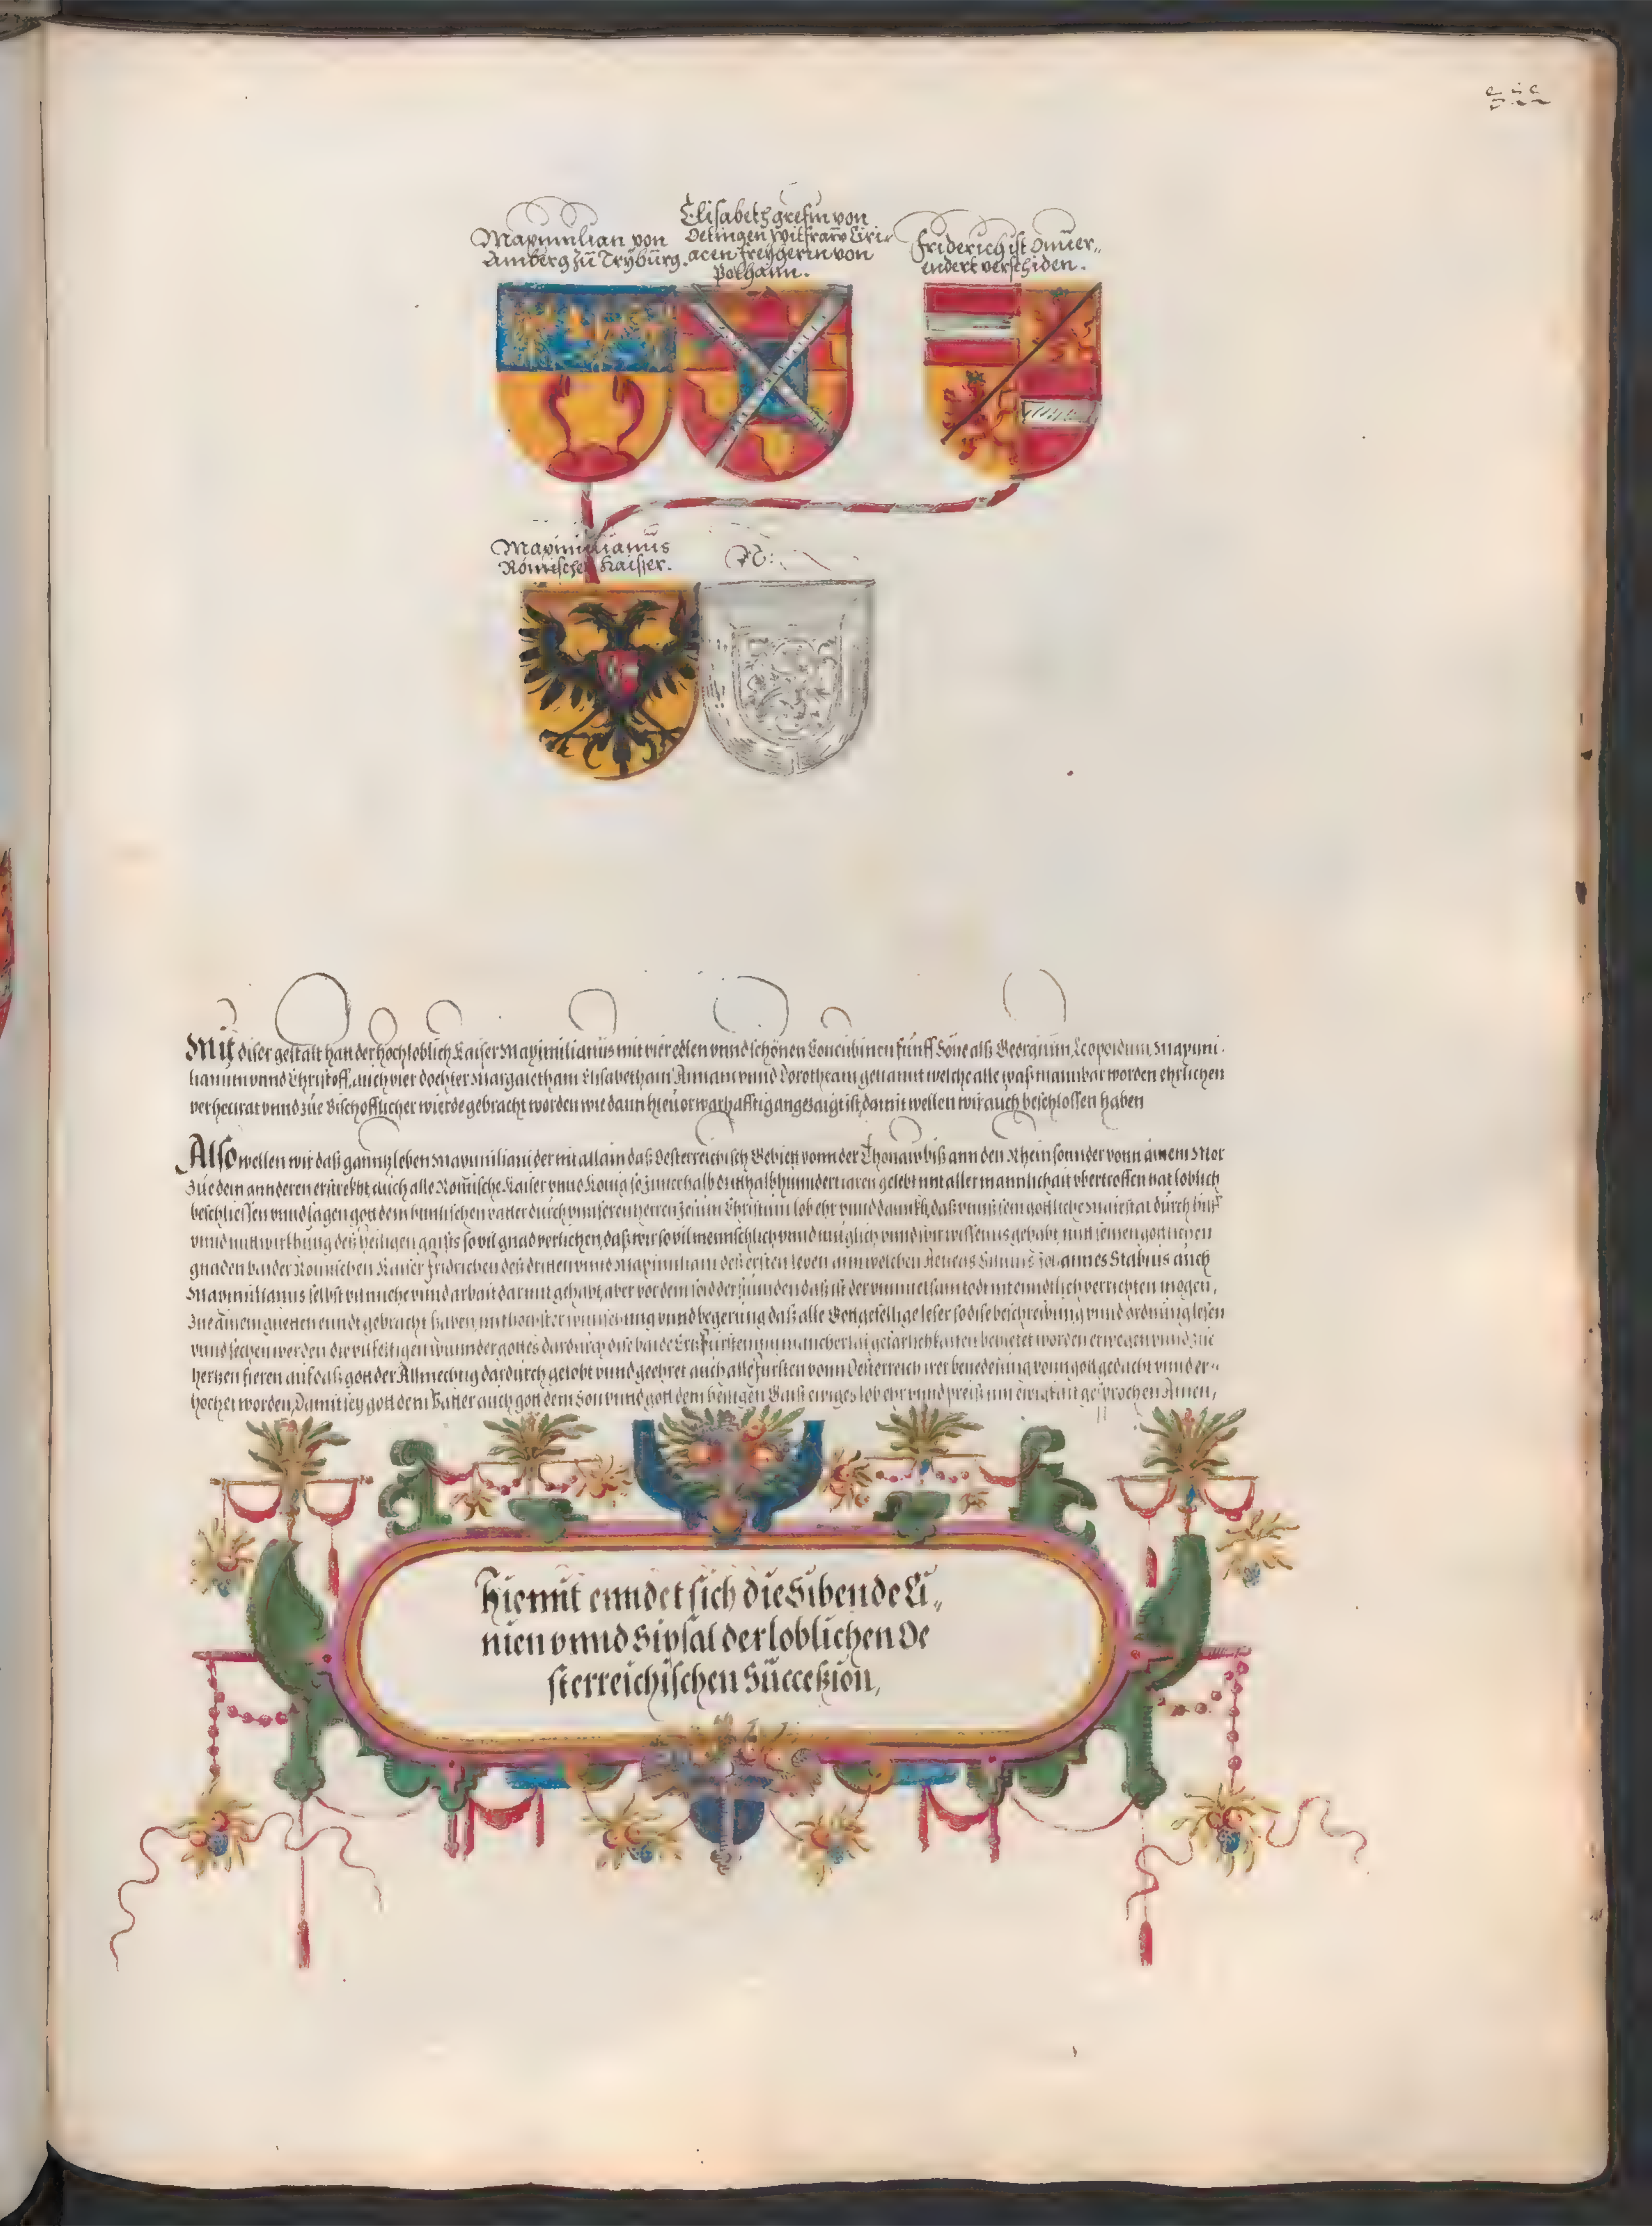 Maximilian von
Amberg zū Trÿbūrg.
Elisabeth grefin von
Oetingen witfraw Ciri
acen freÿherin von
Polhaim.
Friderich ist onuer„
endert verschiden.
Maximilianus
Römischer Kaisser.
Mit diser gestalt hatt der hochloblich Kaiser Maximilianus mit vier edlen vnnd schönen Concubinen funff Söne alß Georgium, Leopoldum, Maximi
lianum vnnd Christoff, auch vier dochter Margaretham Elisabetham Annam vnnd Dorotheam genannt welche alle waß mannbar worden ehrlichen
verheirat vnnd zue Bischofflicher wierde gebracht worden wie dann hieuor warhafftig angezaigt ist, damit wellen wir auch beschlossen haben
Also wellen wir daß ganntz leben Maximiliani der nit allain daß Oesterreichisch Gebiett vonn der Thonaw biß ann den Rhein sonnder vonn ainem Mör
zue dem annderen erstrekht, auch alle Römische Kaiser vnnd Konig so innerhalb dritthalbhundert iaren gelebt mit aller mannlichait vbertroffen hat loblich
beschliessen vnnd sagen gott dem himlischen vatter durch vnnseren herren Jesum Christum lob ehr vnnd dannkh, daß vnnß sein gottliche maiestat durch hilff
vnnd mitwirkhung deß heiligen gaists so vil gnad verlichen, daß wir so vil mennschlich vnnd müglich vnnd wir wissens gehabt mit seinen gottlichen
gnaden baider Römischen Kaiser Fridrichen deß dritten vnnd Maximiliani deß ersten leben ann welchen Aeneas Siluius Johannes Stabius auch
Maximilianus selbst vil muehe vnnd arbait darmit gehabt, aber vor dem
zue ainem guetten enndt gebracht haben, mit höchster wunschung vnnd begerung daß alle Gottgefellige leser so dise beschreibung vnnd ordnung lesen
vnnd sechen werden die vilfeltigen wunnder gottes dardurch dise baide Ertzfürsten inn mancherlai gefärlichkaiten behietet worden erwegen vnnd zue
hertzen fieren auf daß gott der Allmechtig dardurch gelobt vnnd geehret auch alle Fursten vonn Oesterreich irer benedeiung vonn gott gedacht vnnd er„
hochet worden, Damit sey gott dem Vatter auch gott dem Son vnnd gott dem heiligen Gaist ewiges lob ehr vnnd preiß inn ewigkait gesprochen Amen,
Hiemit enndet sich die Sibende Li„
nien vnnd Sipsal der loblichen Oe
sterreichischen Succeßion,